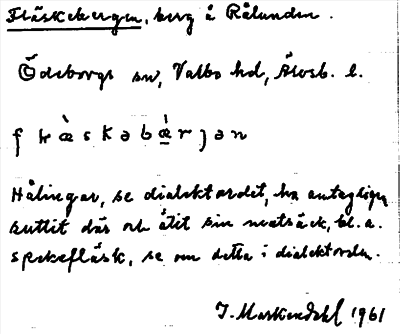 Fläskebergen, berg å Rålunden.
Ödeborgs sn, Valbo hd, Älvsb. l.
Hålingar, se dialektordet, ha antagligen
suttit där och ätit sin matsäck, bl. a.
spekefläsk, se om detta i dialektorden.
1961